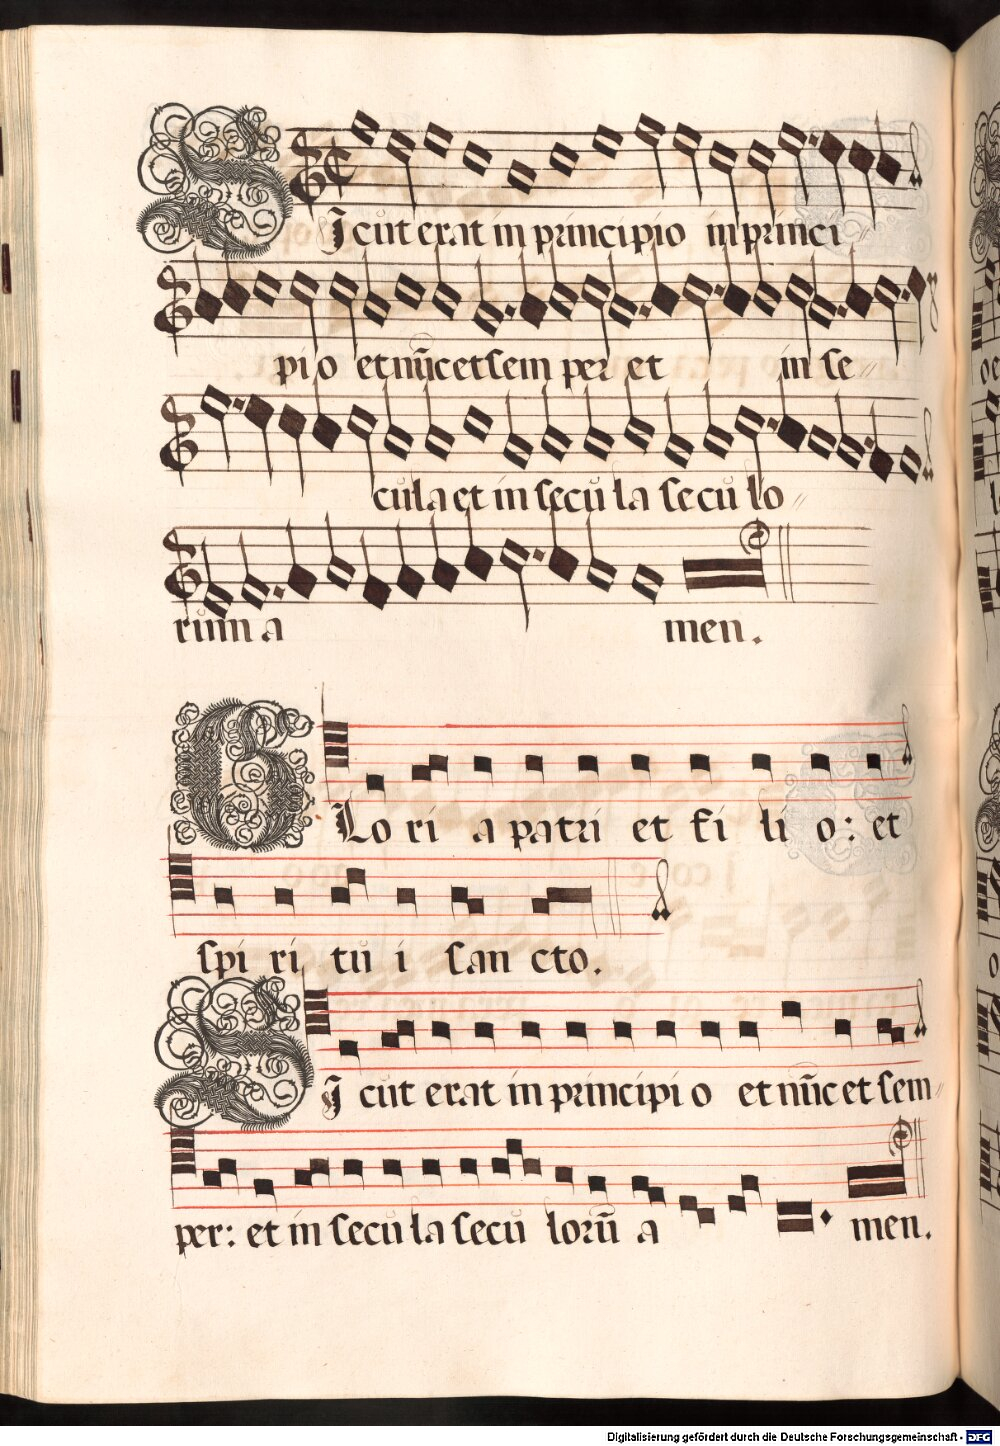 SIcut erat in principio in princi
pio et nu̅c et sem per et in se
cula et in secu la secu lo
rum a men.
GLo ri a patri et fi li o: et
spi ri tu i san cto.
SI cut erat in principi o et nu̅c et sem
per: et in secu la secu loru̅ a men.
Digitalisierung gefördert durch die Deutsche Forschungsgemeinschaft - DFG